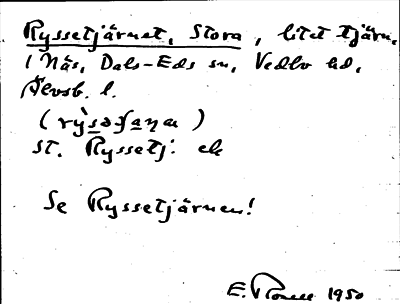 Ryssetjärnet, Stora, litet tjärn,
i Näs, Dals-Eds sn, Vedbo hd,
Älvsb. l.
st. Ryssetj. ek
Se Ryssetjärnen!
E. 1950